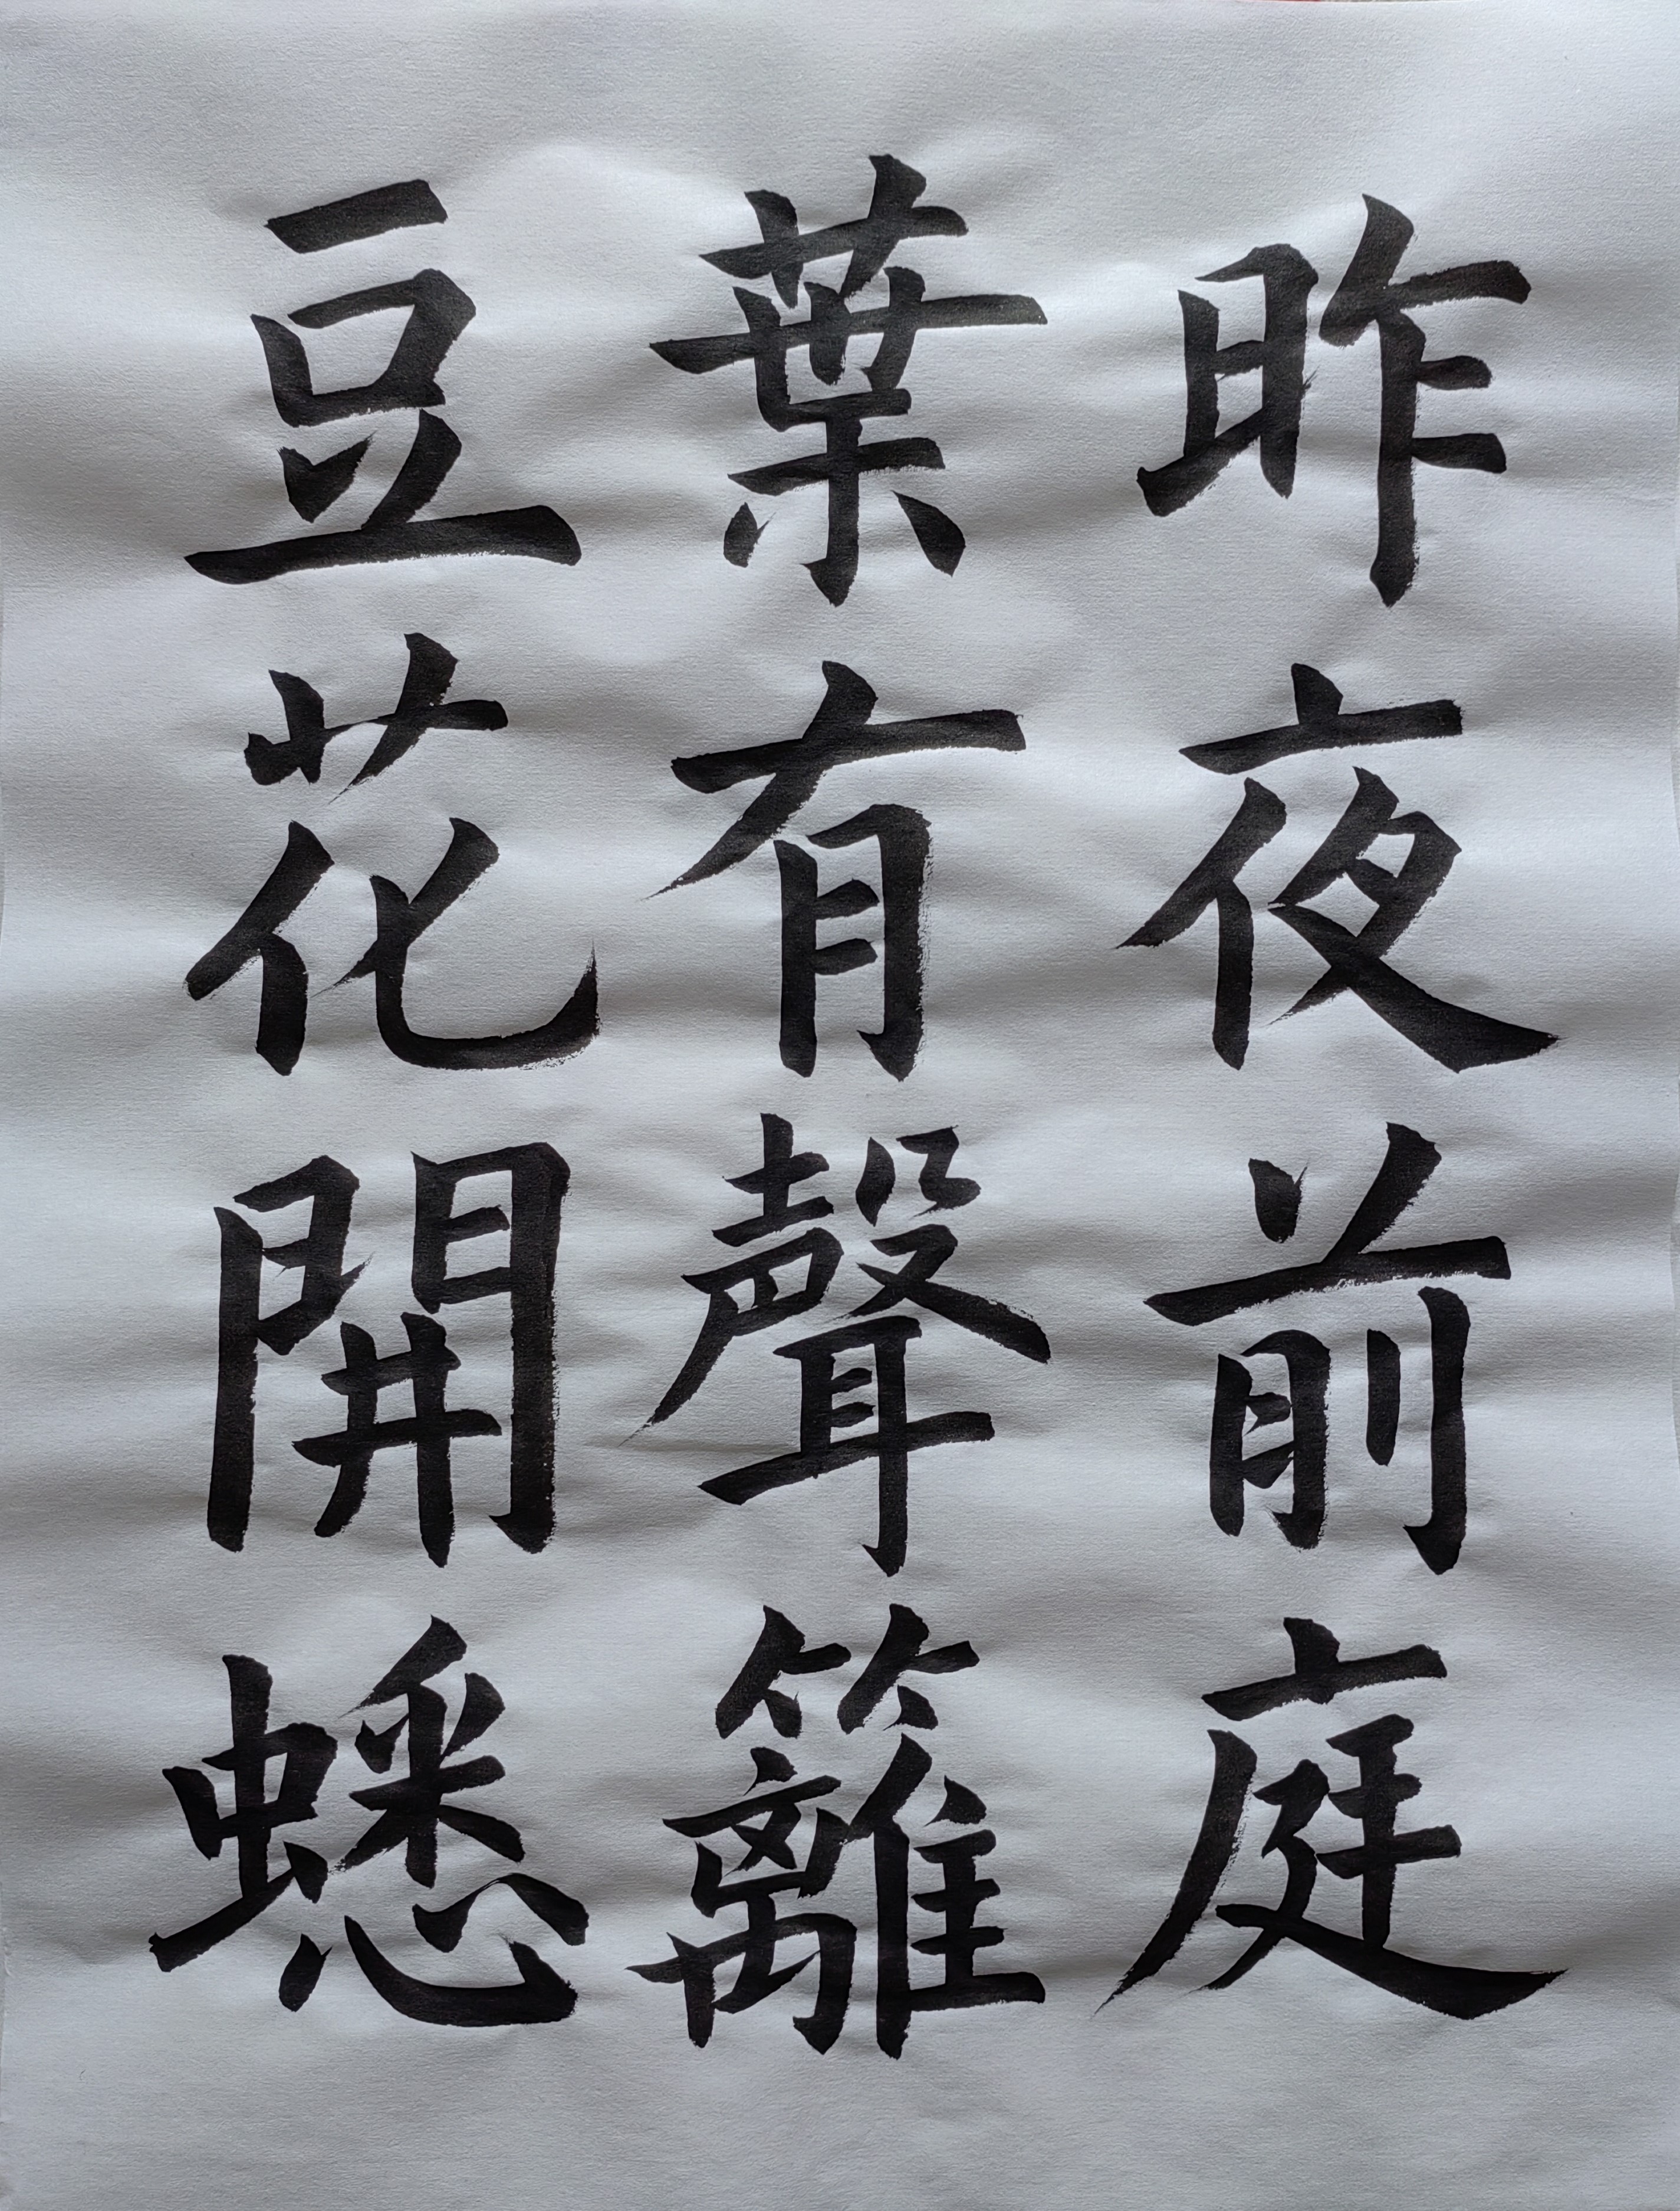 昨夜前庭
葉有聲籬
豆花開蟋